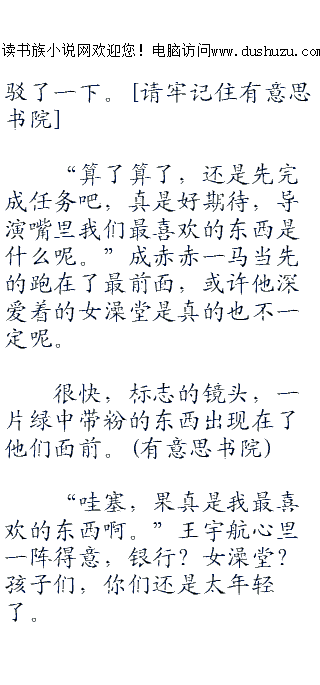 读书族小说网欢迎您！电脑访问www.dushuzu.com
驳了一下。[请牢记住有意思
书院]
“算了算了，还是先完
成任务吧，真是好期待，导
演嘴里我们最喜欢的东西是
什么呢。”成赤赤一马当先
的跑在了最前面，或许他深
爱着的女澡堂是真的也不一
定呢。
很快，标志的镜头，一
片绿中带粉的东西出现在了
他们面前。(有意思书院)
“哇塞，果真是我最喜
欢的东西啊。”王宇航心里
一阵得意，银行？女澡堂？
孩子们，你们还是太年轻
了。